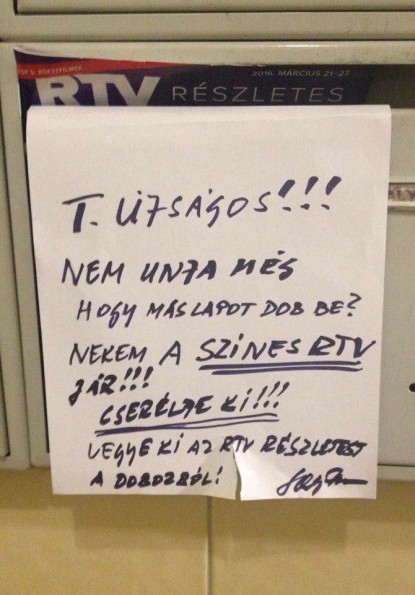 TOP 5: BOKSZFILMEK
2016. MÁRCIUS 21-27.
RTV RÉSZLETES
T. ÚJSÁGOS!!!
NEM UNJA MÉG
HOGY MÁS LAPOT DOB BE?
NEKEM A SZÍNES RTV
JÁR!!!
CSERÉLJE KI!!!
VEGYE KI AZ RTV RÉSZLETEST
A DOBOZBÓL!